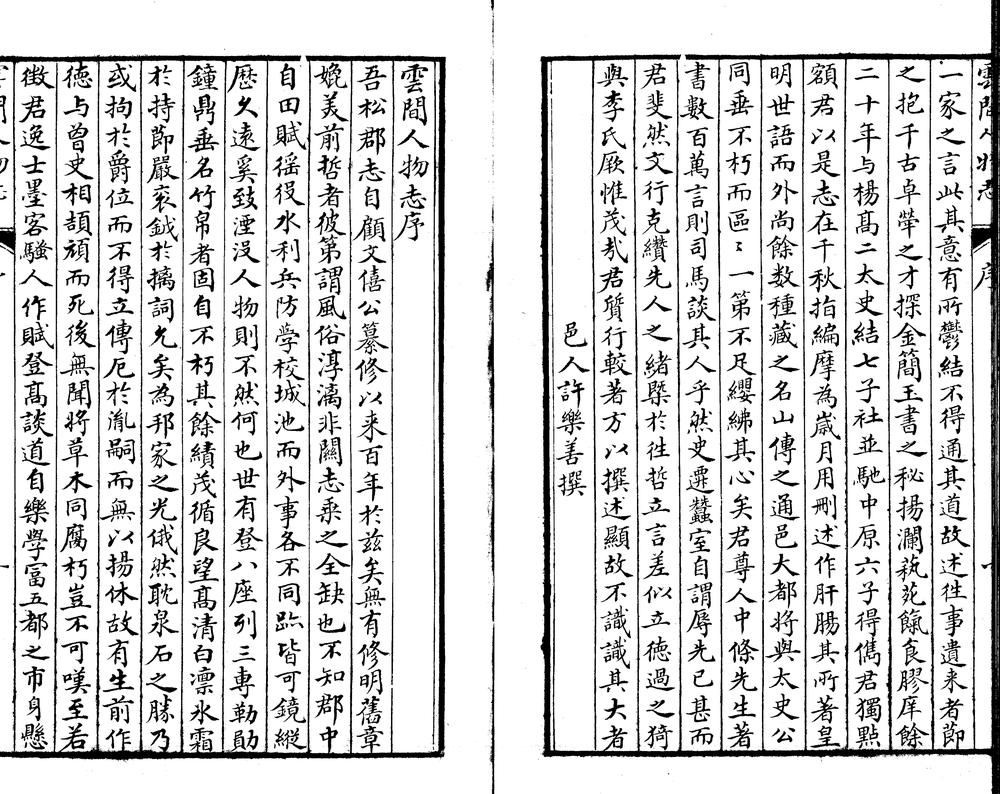 雲間人物志 序 一
一家之言此其意有所鬱結不得通其道故述往事遺来者節
之抱千古卓犖之才探金簡玉書之秘揚瀾蓺苑餼食膠庠餘
二十年与楊髙二太史結七子社並馳中原六子得儁君獨點
額君以是志在千秋指編摩為嵗月用刪述作肝腸其所著皇
明世語而外尚餘数種藏之名山傳之通邑大都將與太史公
同垂不朽而區〻一第不足纓紼其心矣君尊人中條先生著
書數百萬言則司馬談其人乎然史遷蠶室自謂辱先已甚而
君斐然文行克纘先人之緒槩於徃哲立言差似立徳過之猗
與李氏厥惟茂㢤君質行較著方以撰述顯故不識識其大者
邑人許樂善撰
雲間人物志序
吾松郡志自顧文僖公纂修以来百年於兹矣無有修明舊章
娩美前哲者彼第謂風俗淳漓非關志乘之全缺也不知郡中
自田賦徭役水利兵防学校城池而外事各不同跡皆可鏡縱
歷久遠奚致湮沒人物則不然何也世有登八座列三専勒勛
鐘鼎垂名竹帛者固自不朽其餘績茂循良望髙清白凛氷霜
於持節嚴衮鉞於摛詞允矣為邦家之光俄然耽泉石之勝乃
或拘於爵位而不得立傳厄於胤嗣而無以揚休故有生前作
徳与曾史相頡頏而死後無聞將草木同腐朽豈不可嘆至若
徴君逸士墨客騷人作賦登髙談道自樂學富五都之市身懸